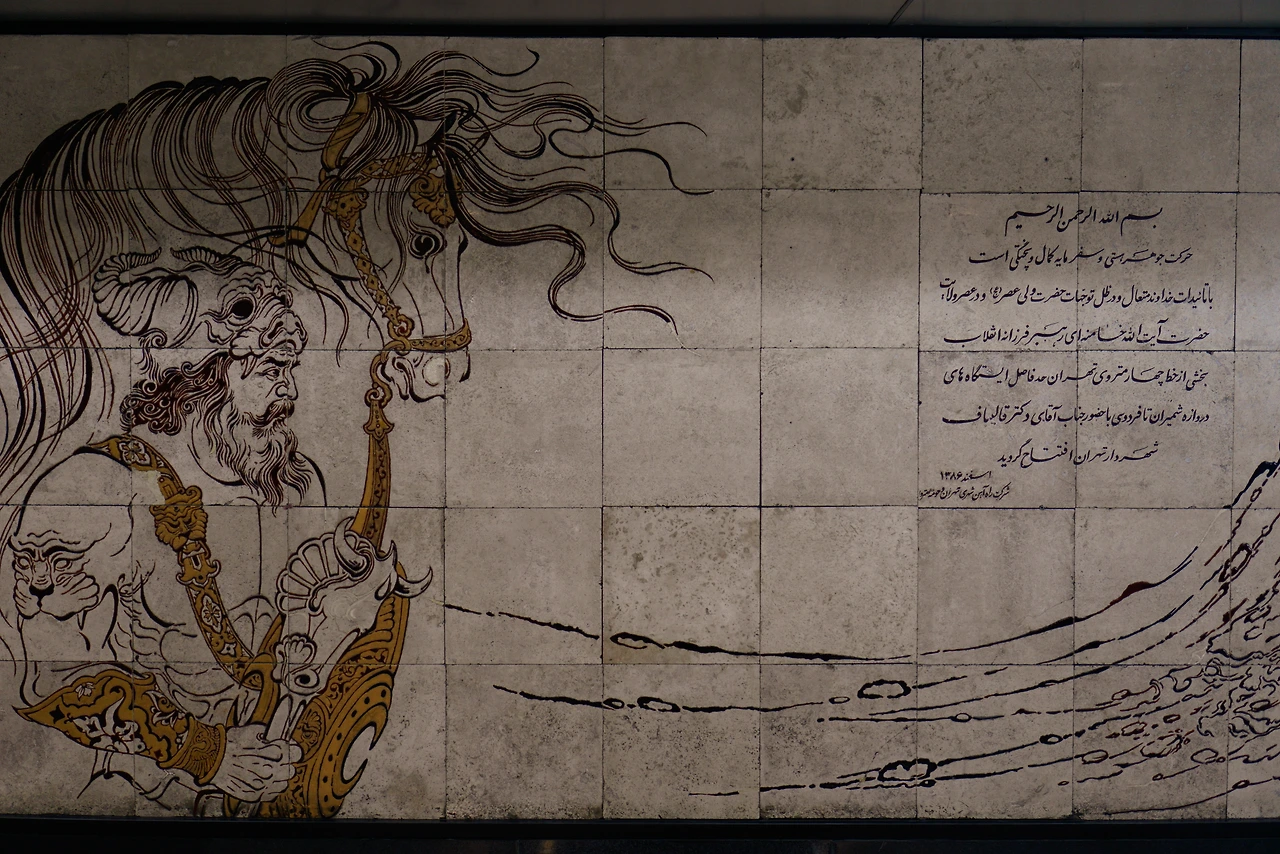 بسم الله الرحمن الرحیم
حرکت جوهر هستی و سفر مایه کمال و پختگی است
با تائیدات خداوند متعال و در ظل توجهات حضرت ولی عصر (عج) و در عصر ولایت
حضرت آیت الله خامنه‌ای رهبر فرزانه انقلاب
بخشی از خط چهار متروی تهران حد فاصل ایستگاه های
دروازه شمیران تا فردوسی با حضور جناب آقای دکتر قالیباف
شهردار تهران افتتاح گردید
اسفند ۱۳۸۶
شرکت راه آهن شهری تهران و حومه